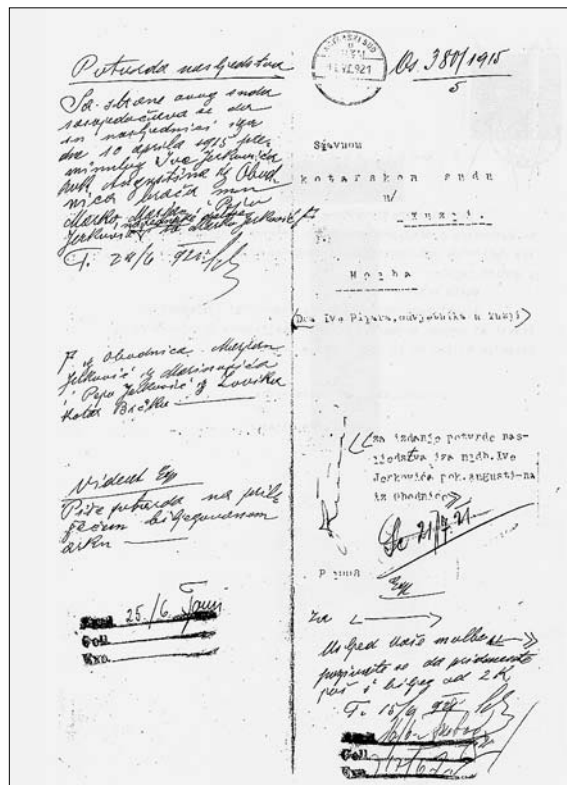 Potvrda nasljedstva
Sa strane ovog suda
zasvjedočava se da
su nasljednici iza
dne 10 aprila 1915 pre
minulog Ive Jerkovića
pok. Augustina iz Obod
nica braća mu
Marko Marjan i Pejo
Jerković
T. 24/6 921
iz Obodnica. Marjan
Jelković iz
i Pejo Jelković iz Lovika
kotar Brčko
Vident Exp
Piše potvrda na prile
žećem biljegovanom
arku
25./6.
Coll.
Exp.
SUD
VI. 921
Os. 380/1915
5
Slavnom
kotarskom sudu
u/
Tuzli.
Molba
(Dra Ive Pilara, odvjetnika u Tuzli)
za izdanje potvrde nas-
ljedstva iza midh. Ive
Jerkovića pok. Augusti-na
iz Obodnice
21/7. 21.
Exp
Za
Usljed Vaše molbe
pozivate se da pridonesete
još i biljeg od 2 K
T. 15/6 921
Coll.
Exp.